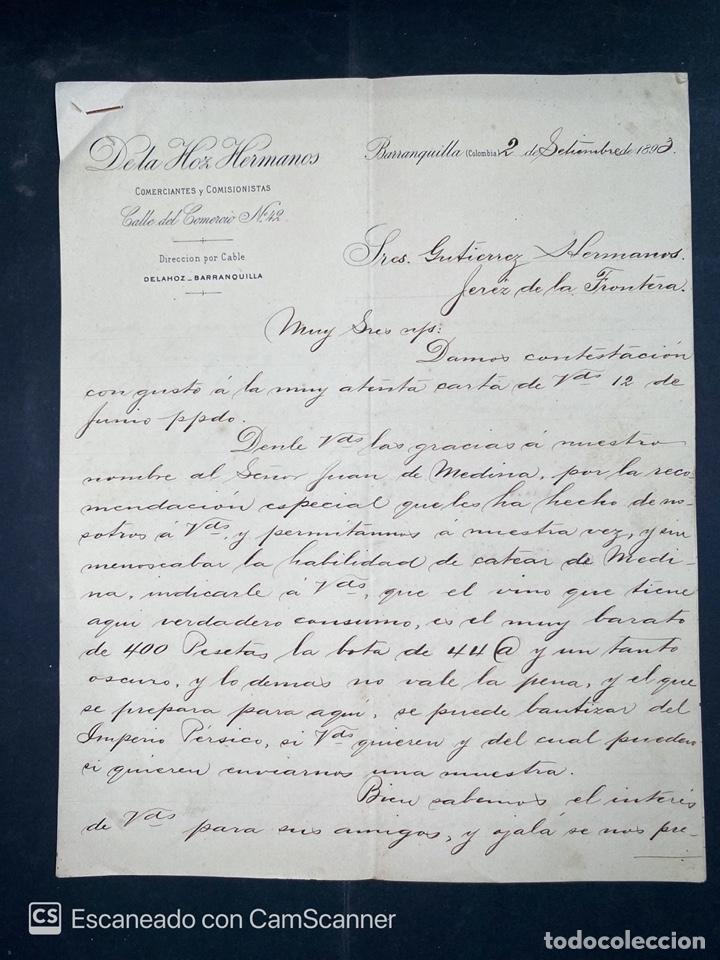 De la Hoz Hermanos
COMERCIANTES y COMISIONISTAS
Calle del Comercio Nº 42
Direccion por Cable
DELAHOZ_BARRANQUILLA
Barranquilla (Colombia) 2 de Setiembre de 1893.
Sres. Gutierrez Hermanos.
Jeréz de la Frontera.
Muy Sres n/s:
Damos contestación
con gusto á la muy atenta carta de Vds 12 de
Junio ppdo.
Denle Vds las gracias á nuestro
nombre al Señor Juan de Medina, por la reco-
mendación especial que les ha hecho de no-
sotros á Vds, y permítannos á nuestra vez, y sin
menoscabar la habilidad de catear de Medi-
na, indicarle á Vds, que el vino que tiene
aqui verdadero consumo, es el muy barato
de 400 Pesetas la bota de 44@ y un tanto
oscuro, y lo demas no vale la pena, y el que
se prepara para aquí, se puede bautizar del
Imperio Pérsico, si Vds quieren y del cual pueden
si quieren enviarnos una muestra.
Bien sabemos el interés
de Vds para sus amigos, y ojalá se nos pre-
CS Escaneado con CamScanner
todocoleccion